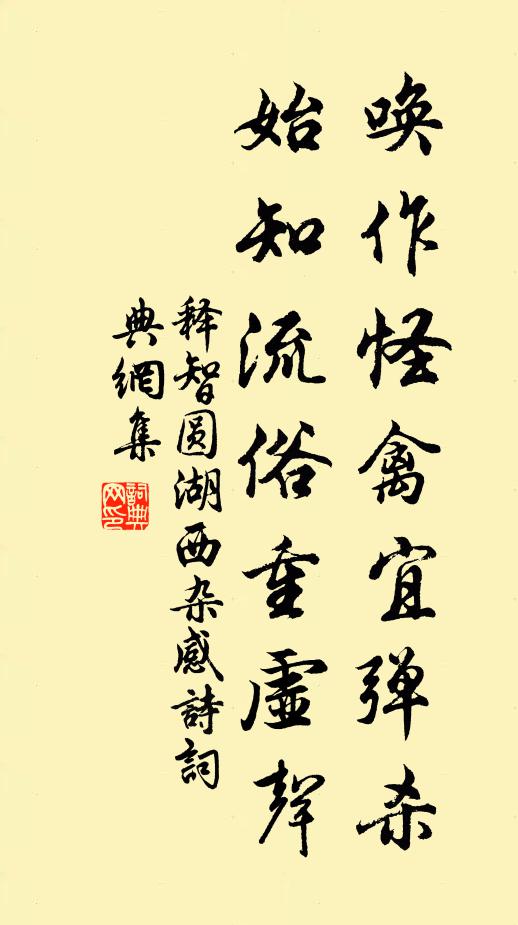 唤作怪禽宜弹杀
始知流俗重虚聲
释智圆湖西杂感詩詞
典網集
詞典网印